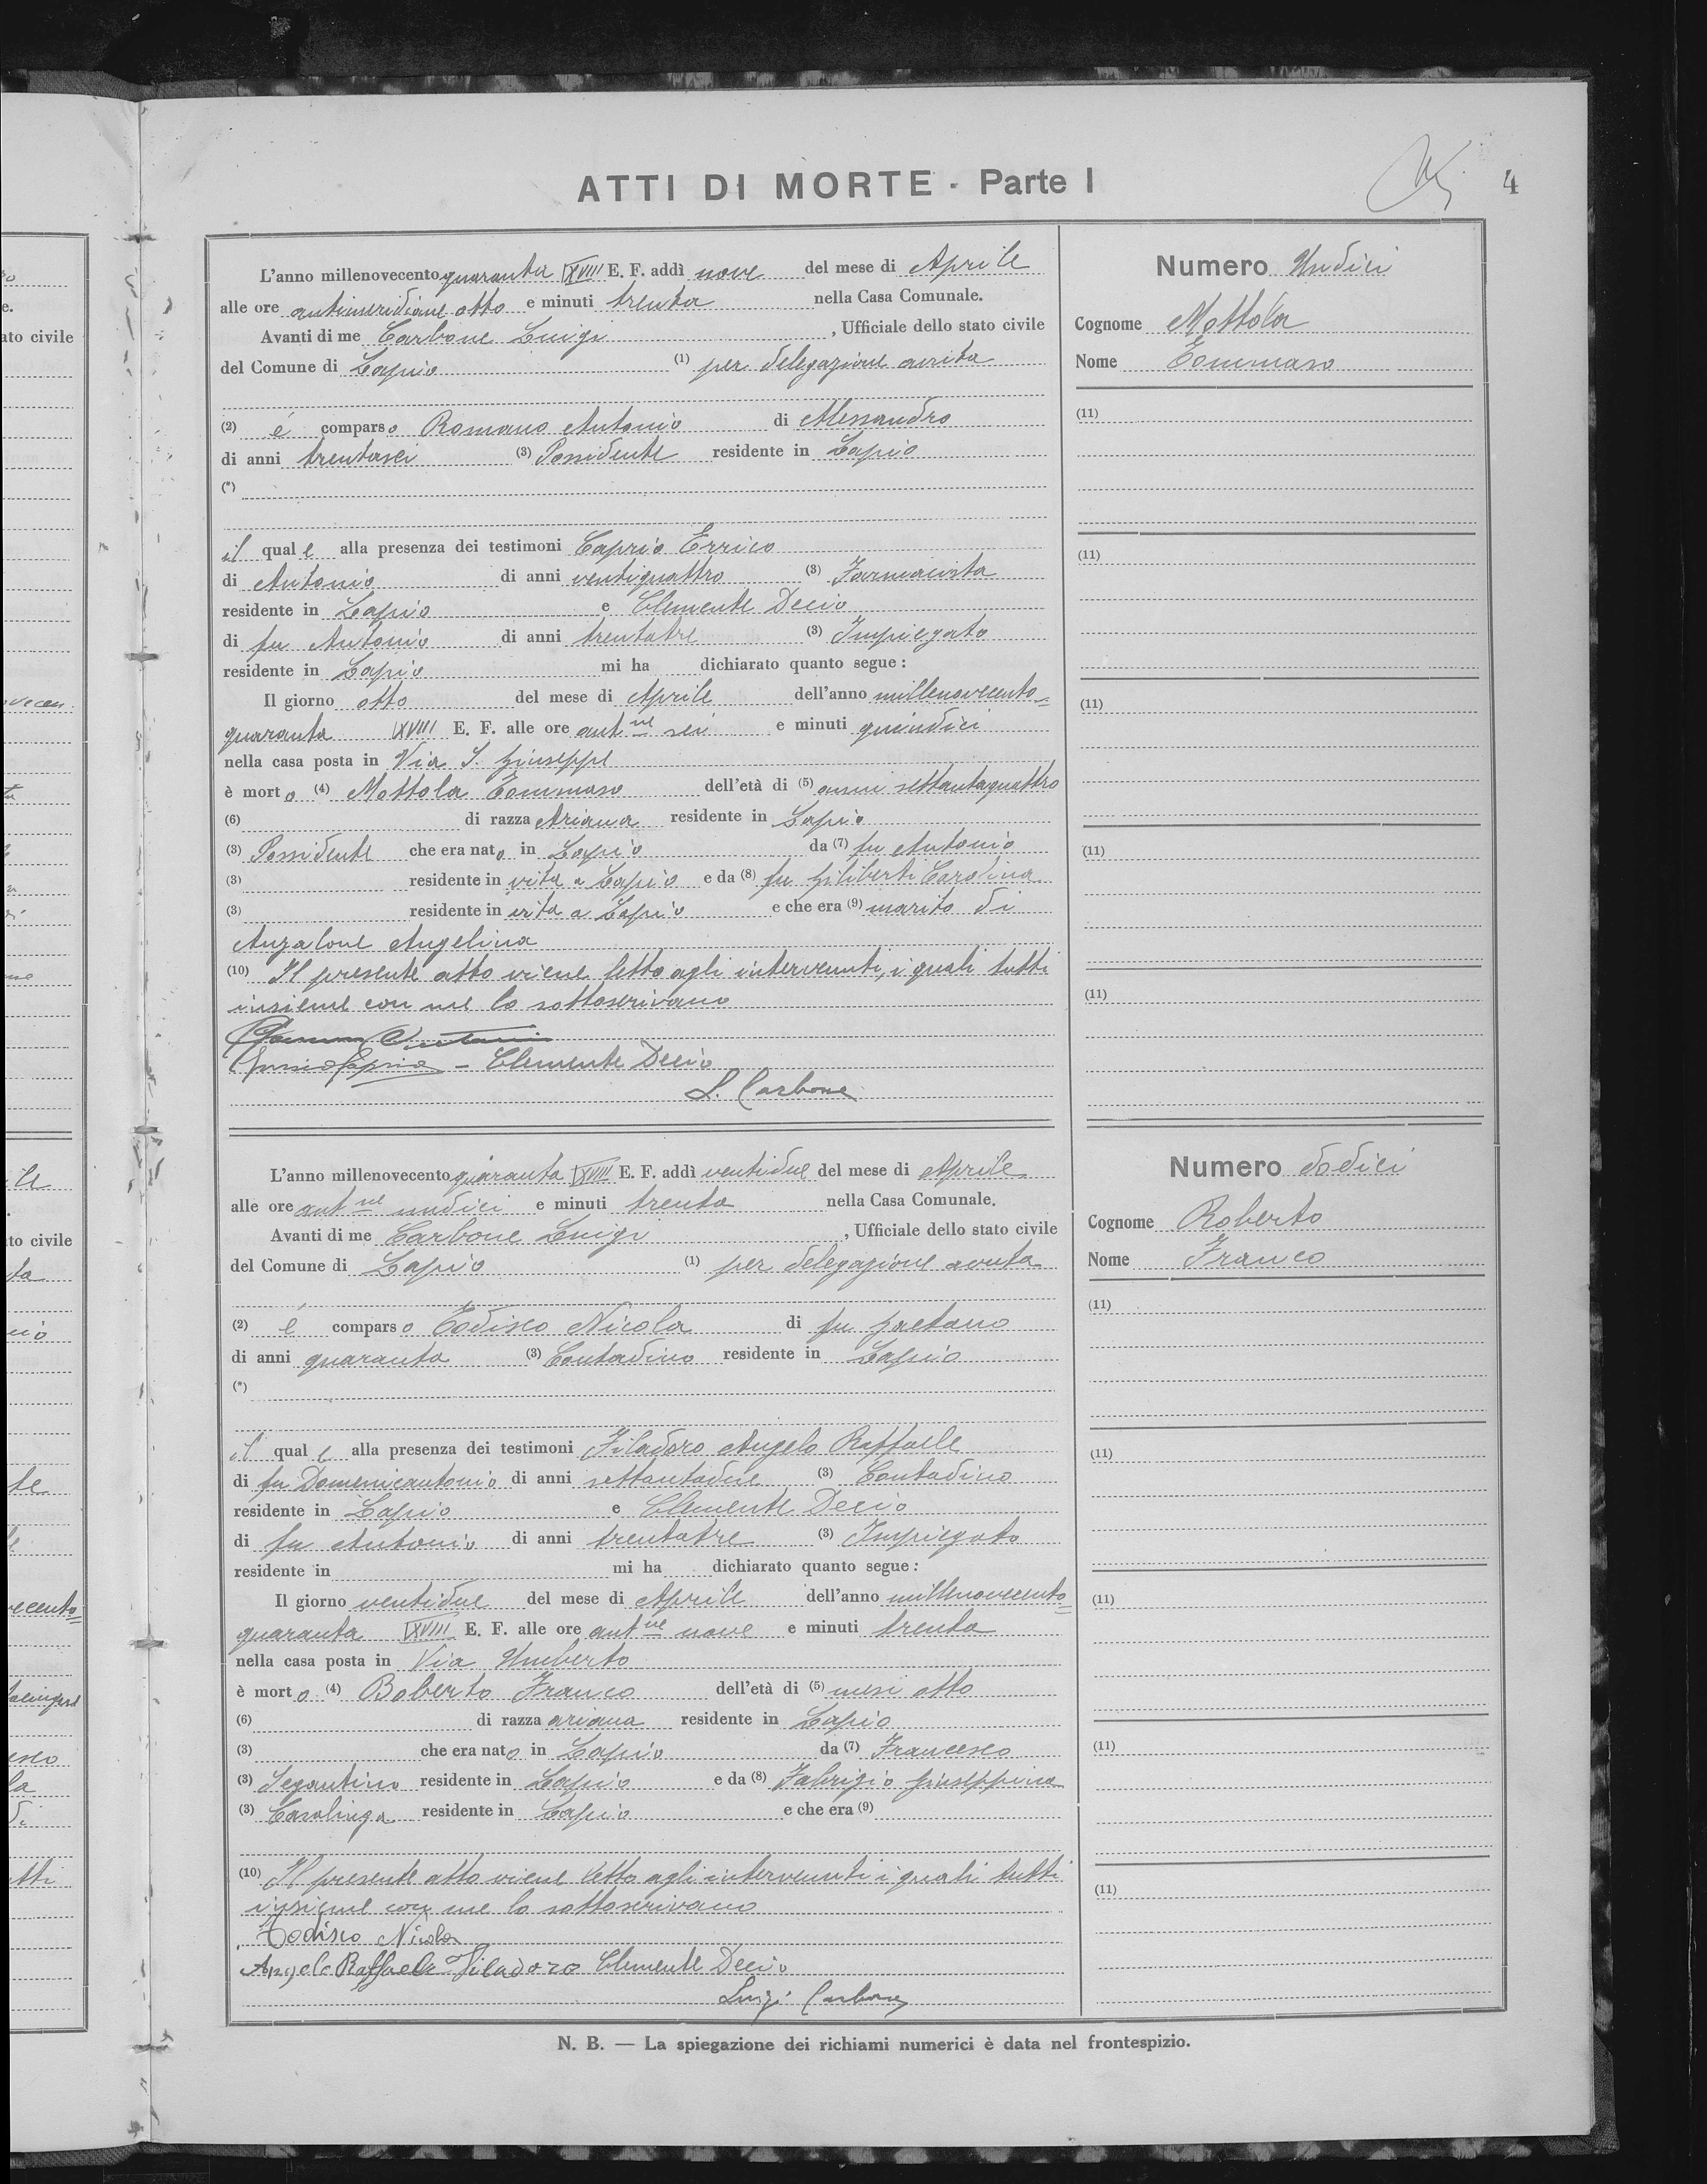 ATTI DI MORTE - Parte I
4
L'anno millenovecento quaranta XVIII E. F. addì nove del mese di Aprile
alle ore antimeridiane otto e minuti trenta nella Casa Comunale.
Avanti di me Carbone Luigi, Ufficiale dello stato civile
del Comune di Lapio (1) per delegazione avuta
(2) è comparso Romano Antonio di Alessandro
di anni trentasei (3) Possidente residente in Lapio
(*)
il quale alla presenza dei testimoni Caprio Errico
di Antonio di anni ventiquattro (3) Farmacista
residente in Lapio e Clemente Decio
di fu Antonio di anni trentatre (3) Impiegato
residente in Lapio mi ha dichiarato quanto segue:
Il giorno otto del mese di Aprile dell'anno millenovecento=
quaranta XVIII E. F. alle ore ant.ne sei e minuti quindici
nella casa posta in Via S. Giuseppe
è morto (4) Mottola Tommaso dell'età di (5) anni settantaquattro
(6) di razza Ariana residente in Lapio
(3) Possidente che era nato in Lapio da (7) fu Antonio
(3) residente in vita a Lapio e da (8) fu Filiberti Carolina
(3) residente in vita a Lapio e che era (9) marito di
Anzalone Angelina
(10) Il presente atto viene letto agli intervenuti, i quali tutti
insieme con me lo sottoscrivano
Romano Antonio
Caprio - Clemente Decio
L. Carbone
Numero Undici
Cognome Mottola
Nome Tommaso
(11)
(11)
(11)
(11)
(11)
L'anno millenovecento quaranta XVIII E. F. addì ventidue del mese di Aprile
alle ore ant.ne undici e minuti trenta nella Casa Comunale.
Avanti di me Carbone Luigi, Ufficiale dello stato civile
del Comune di Lapio (1) per delegazione avuta
(2) è comparso Todisco Nicola di fu Gaetano
di anni quaranta (3) Contadino residente in Lapio
(*)
il quale alla presenza dei testimoni Filadoro Angelo Raffaele
di fu Domenicantonio di anni settantadue (3) Contadino
residente in Lapio e Clemente Decio
di fu Antonio di anni trentatre (3) Impiegato
residente in mi ha dichiarato quanto segue:
Il giorno ventidue del mese di Aprile dell'anno millenovecento=
quaranta XVIII E. F. alle ore ant.ne nove e minuti trenta
nella casa posta in Via Umberto
è morto (4) Roberto Franco dell'età di (5) mesi otto
(6) di razza ariana residente in Lapio
(3) che era nato in Lapio da (7) Francesco
(3) Segantino residente in Lapio e da (8) Fabrizio Giuseppina
(3) Casalinga residente in Lapio e che era (9)
(10) Il presente atto viene letto agli intervenuti i quali tutti
insieme con me lo sottoscrivano
Todisco Nicola
Angelo Raffaele Filadoro Clemente Decio
Luigi Carbone
Numero dodici
Cognome Roberto
Nome Franco
(11)
(11)
(11)
(11)
(11)
N. B. — La spiegazione dei richiami numerici è data nel frontespizio.